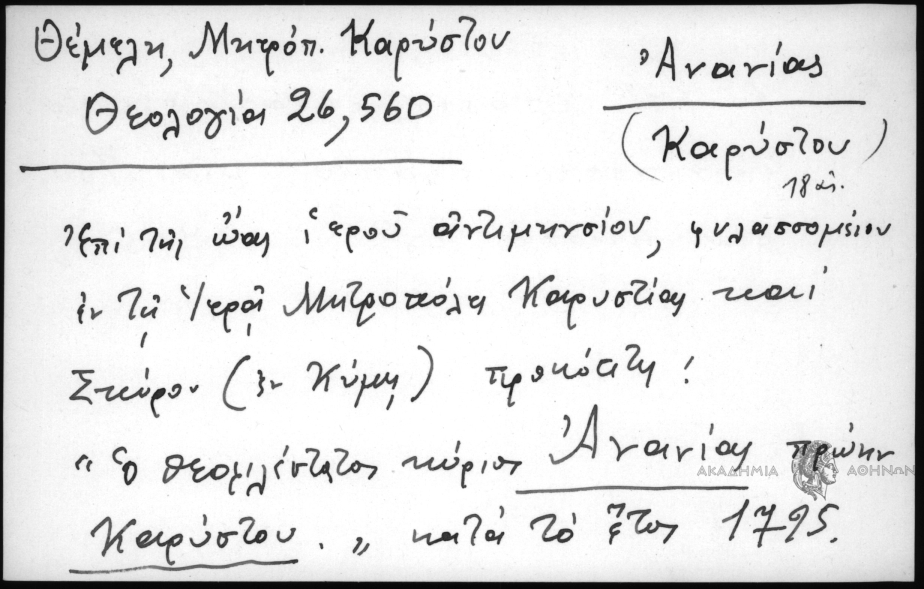 Θέμελη, Μητρόπ. Καρύστου
Θεολογία 26, 560
Ἀνανίας
(Καρύστου)
18 αἰ.
Ἐπί τῆς ὤας ἱεροῦ ἀντιμηνσίου, φυλασσομένου
ἐν τῇ Ἱερᾷ Μητροπόλει Καρυστίας καί
Σκύρου (ἐν Κύμῃ)
" Ὁ θεοφιλέστατος κύριος Ἀνανίας πρώην
Καρύστου. " κατά τό ἔτος 1795.
ΑΚΑΔΗΜΙΑ ΑΘΗΝΩΝ